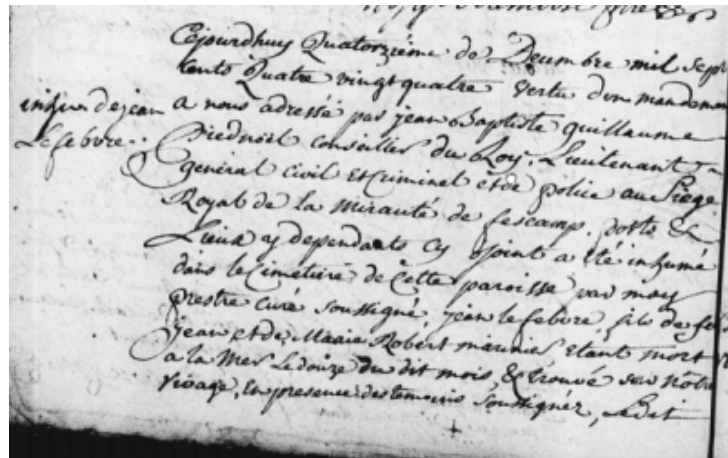 Cejourdhuy Quatorzième de Decembre mil sept
cents Quatre vingt quatre vertu d'un mandement
a nous adressé par jean Baptiste guillaume
inhum dejean
Lefebvre..
Piednoel conseiller du Roy, Lieutenant
général civil et Criminel et de police au Siège
Royal de la Mirauté de fescamp, ports &
Lieux y dependants cy joint a été inhumé
dans le Cimetière de Cette paroisse par moy
prestre curé soussigné, jean lefebvre, fils de feu
jean et de Marie Robert marinier, étant mort
a la Mer Le douze du dit mois, & trouvé sur nôtre
rivage, en presence des temoins soussignéz, Ledit